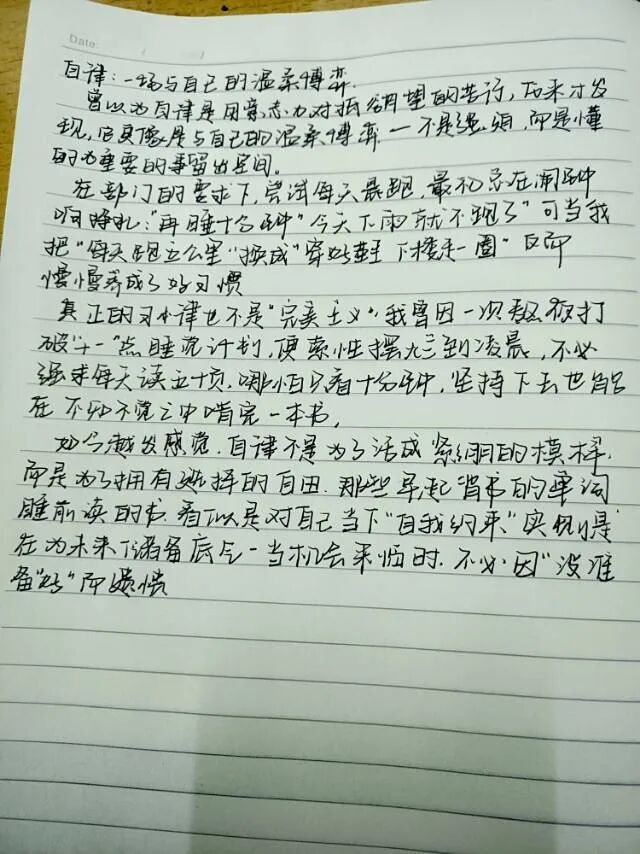 Date:
自律：一场与自己的温柔博弈.
曾以为自律是用意志力对抗欲望的苦行，后来才发
现，它更像是与自己的温柔博弈 — 不是强迫，而是懂
的为重要的事留出空间。
在部门的要求下，尝试每天晨跑，最初总在闹钟
响时挣扎："再睡十分钟"今天下雨就不跑了"可当我
把"每天跑五公里"换成"穿好鞋 下楼走一圈"反而
慢慢养成了好习惯
真正的自律也不是"完美主义"，我曾因一次熬夜打
破"十一"点睡觉计划，便索性摆烂到凌晨，不必
强求每天读五十页，哪怕只看十分钟，坚持下去也能
在不知不觉之中啃完一本书，
如今越发感觉，自律不是为了活成紧绷的模样，
而是为了拥有选择的自由，那些早起背书的单词
睡前读的书，看似是对自己当下"自我约束"实则是
在为未来储备底气一当机会来临时，不必因"没准
备好"而遗憾